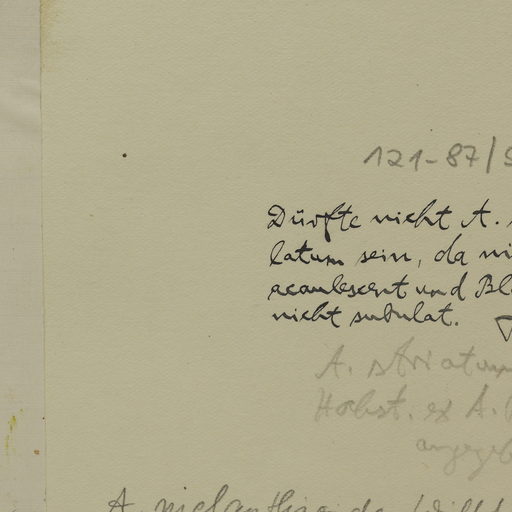 121-87/
Dürfte nicht A.
latum sein, da
acaulescent und
nicht subulat.
A. striatum
Hochst. ex A.
angegeb
A. melanthioides Willd